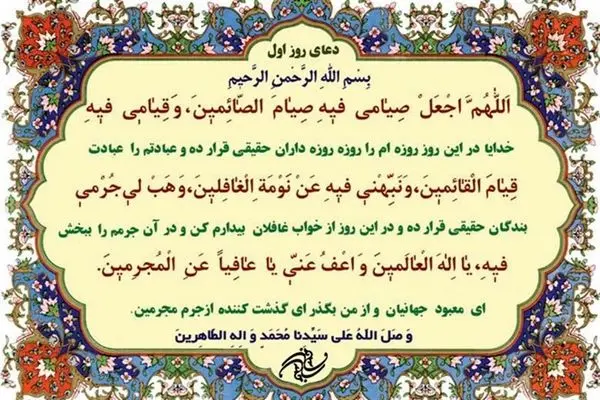 دعای روز اول
بِسْمِ اللهِ الرَّحْمنِ الرَّحیمِ
اَللّهُمَّ اجْعَلْ صِیامی فیهِ صِیامَ الصّائِمینَ، وَقِیامی فیهِ
خدایا در این روز روزه ام را روزه روزه داران حقیقی قرار ده و عبادتم را عبادت
قِیامَ الْقائِمینَ، وَنَبِّهْنی فیهِ عَنْ نَوْمَةِ الْغافِلینَ، وَهَبْ لی جُرْمی
بندگان حقیقی قرار ده و در این روز از خواب غافلان بیدارم کن و در آن جرمم را ببخش
فیهِ، یا اِلهَ الْعالَمینَ وَاعْفُ عَنّی یا عافِیاً عَنِ الْمُجْرِمینَ.
ای معبود جهانیان و از من بگذر ای گذشت کننده ازجرم مجرمین.
وَ صَلَ اللهُ عَلی سَیِّدِنا مُحَمَدٍ وَ الِهِ الطّاهِرینَ